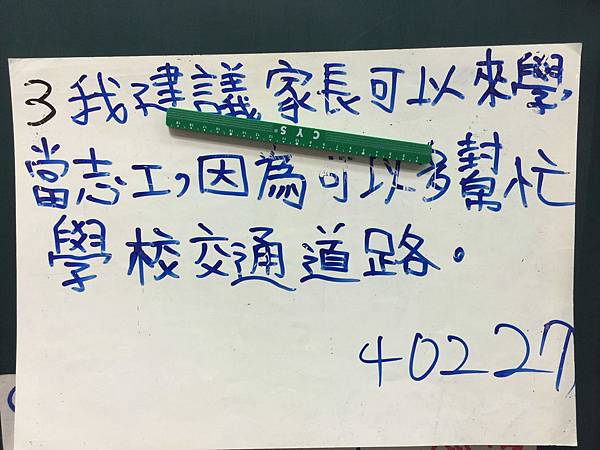 3我建議家長可以來學,
當志工,因為可以多幫忙
學校交通道路。
40227
CYS